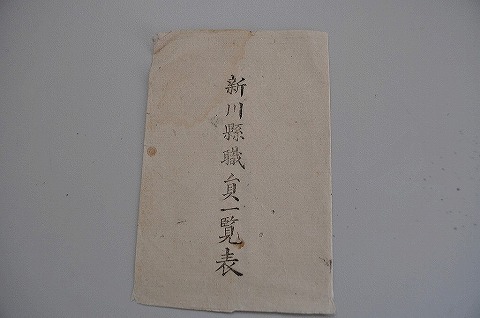 新川縣職員一覧表